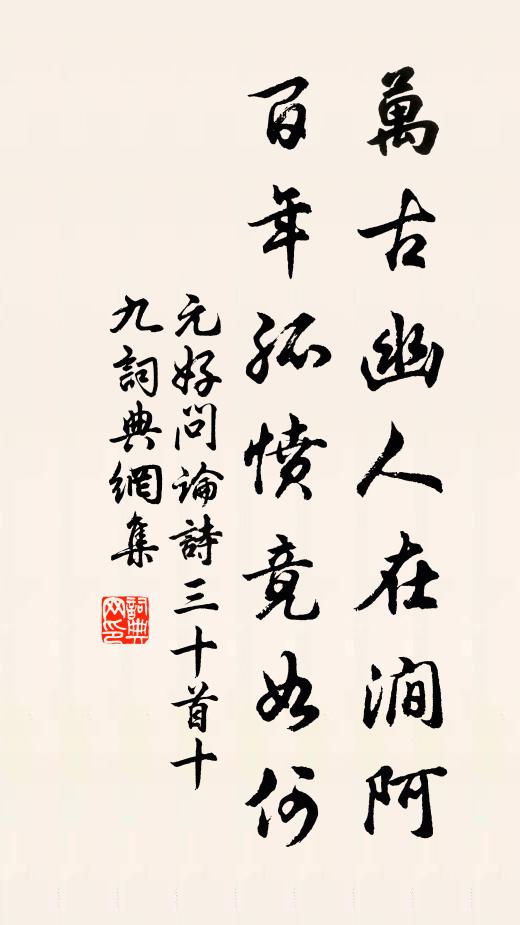 萬古幽人在澗阿
百年孤憤竟如何
元好問論詩三十首十
九詞典網集
詞典网印